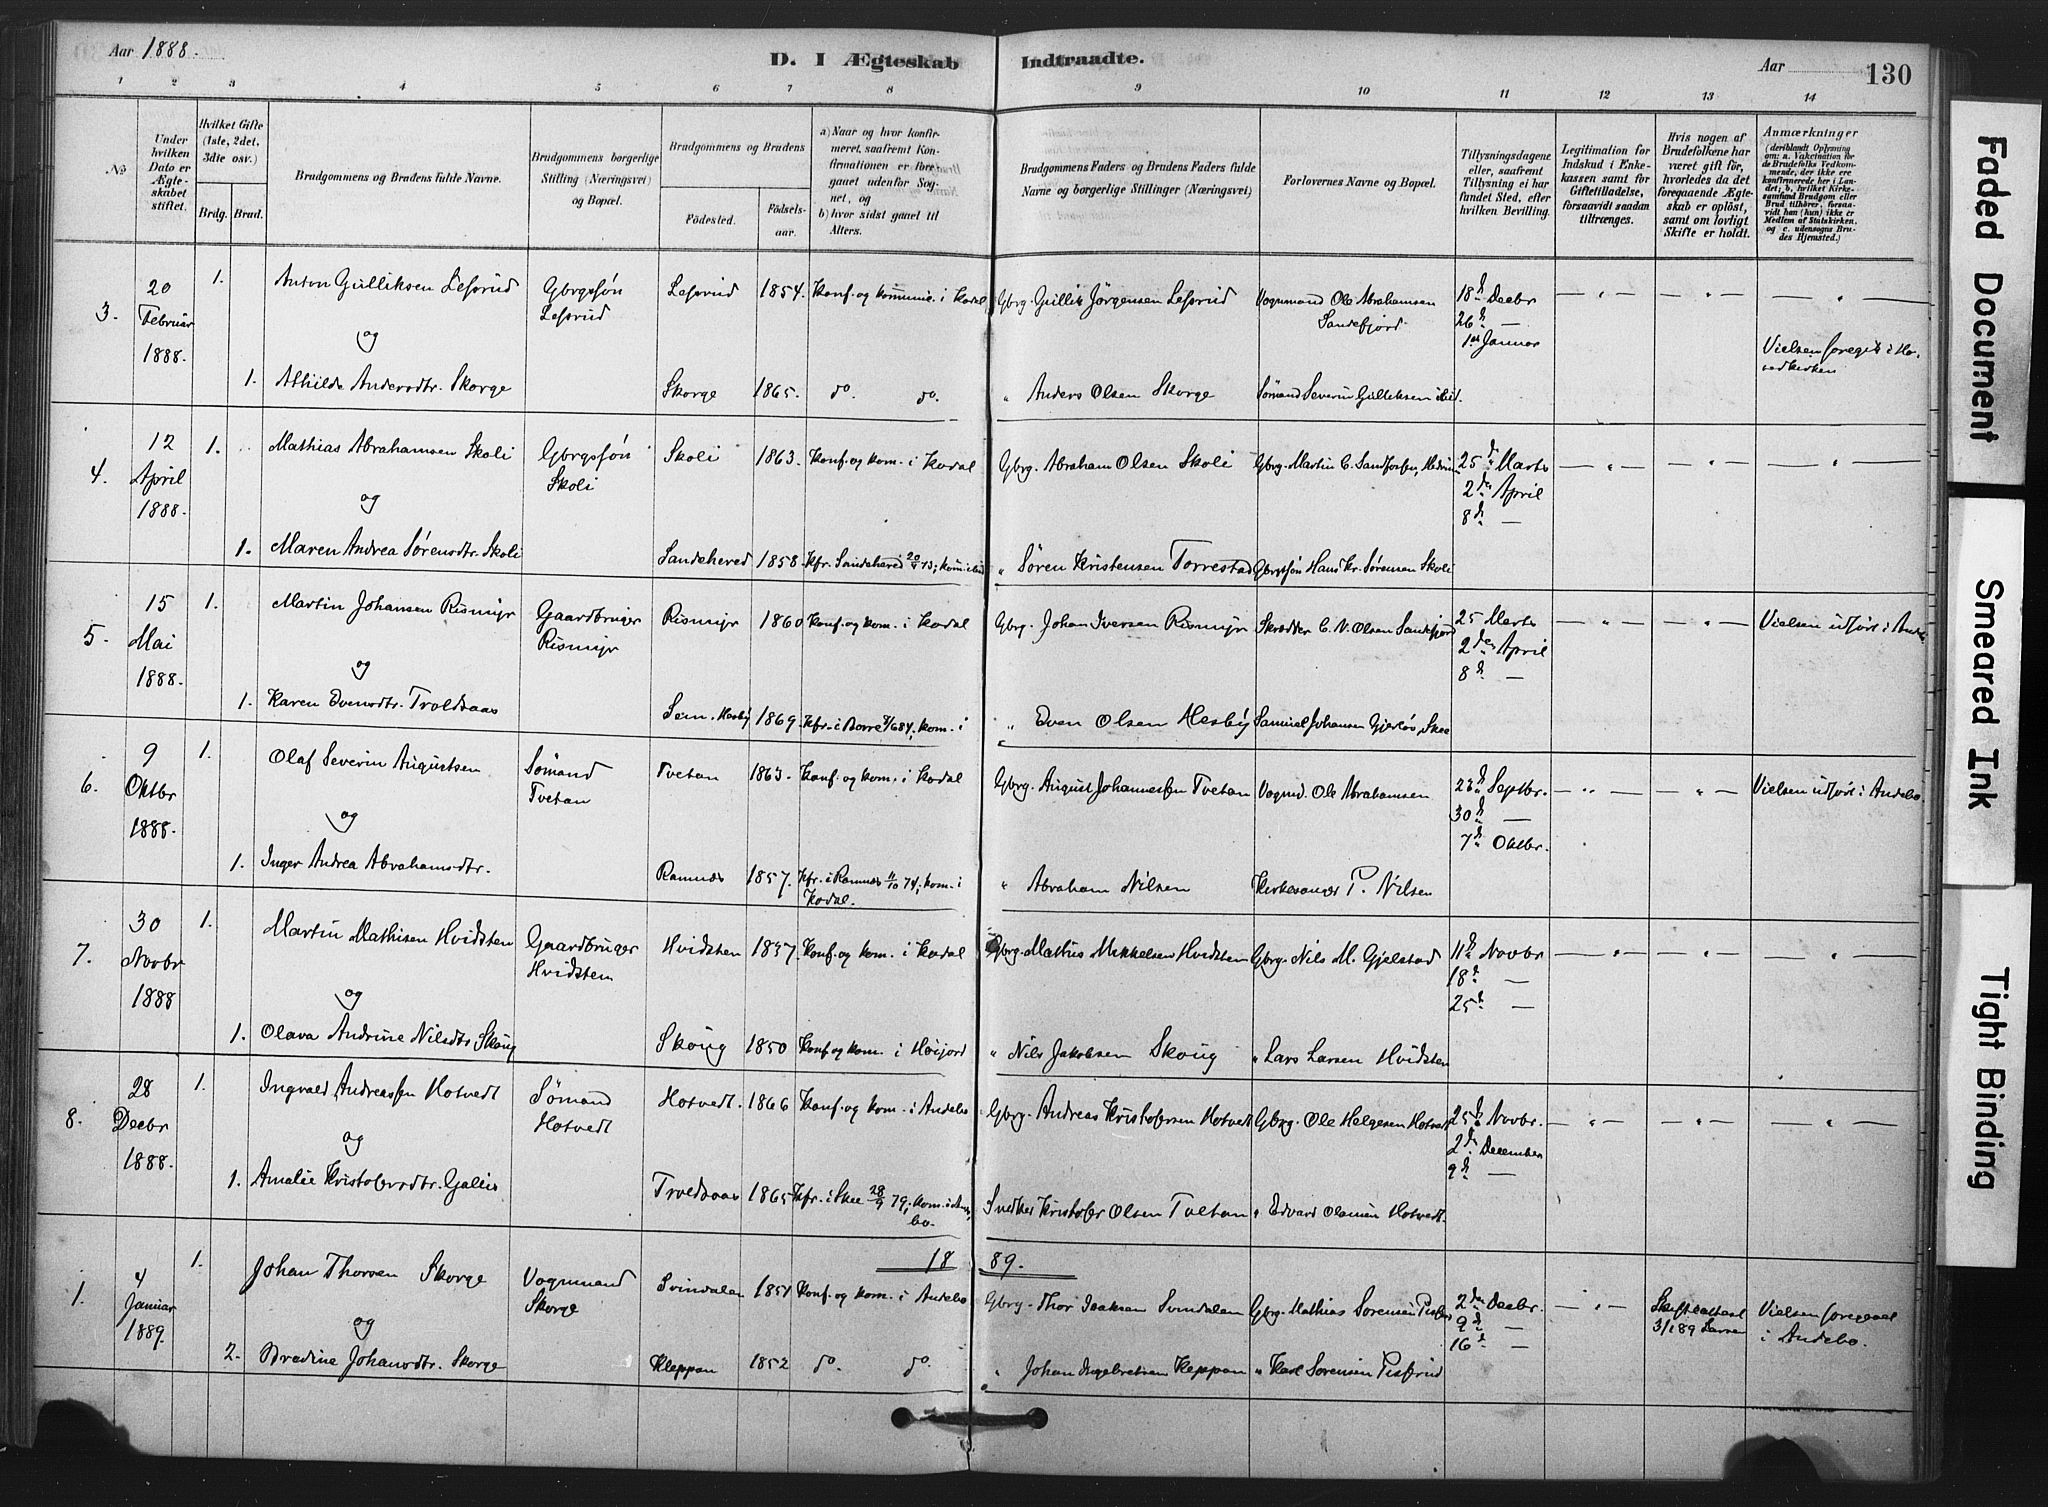 Aar 1888.
D. I Ægteskab Indtraadte.
Aar
130
1 2 3 4 5 6 7 8 9 10 11 12 13 14
No
Under hvilken Dato er Ægteskabet stiftet.
Hvilket Gifte (1ste, 2det, 3die osv.)
Brdg. Brud.
Brudgommens og Brudens fulde Navne.
Brudgommens borgerlige Stilling (Næringsvei) og Bopæl.
Brudgommens og Brudens
Fødested. Fødselsaar.
a) Naar og hvor konfirmeret, saafremt Konfirmationen er foregaaet udenfor Sognet, og
b) hvor sidst gaaet til Alters.
Brudgommens Faders og Brudens Faders fulde Navne og borgerlige Stillinger (Næringsvei)
Forlovernes Navne og Bopæl.
Tillysningsdagene eller, saafremt Tillysning ei har fundet Sted, efter hvilken Bevilling.
Legitimation for Indskud i Enkekassen samt for Giftetilladelse, forsaavidt saadan tiltrænges.
Hvis nogen af Brudefolkene har været gift før, hvorledes da det foregaaende Ægteskab er opløst, samt om lovligt Skifte er holdt.
Anmærkninger (deriblandt Oplysning om: a. Vakcination for de Brudefolks Vedkommende, der ikke ere konfirmerede her i Landet; b. hvilket Kirkesamfund Brudgom eller Brud tilhører, forsaavidt han (hun) ikke er Medlem af Statskirken, og c. udensogns Brudes Hjemsted.)
3. 20 Februar 1888. 1. Anton Gulliksen Lefsrud Gbrgsføn Lefsrud Lefsrud 1854. Konf. og kommunic. i Kodal Gbrg. Gullik Jørgensen Lefsrud Vognmand Ole Abrahamsen Sandefjord. 18d Decbr 26d — 1ste Januar — " — — " — — " —
og
1. Athilde Andersdtr. Skorge Skorge 1865. do. do. " Anders Olsen Skorge Sømand Severin Gulliksen ibid. Vielsen foregik i Hovedkirken
4. 12 April 1888. 1. Mathias Abrahamsen Skoli Gbrgsføn Skoli Skoli 1863. Konf. og kom. i Kodal Gbrg. Abraham Olsen Skoli Gbrg. Martin C. Sandfossen, 25d Marts 2den April 8d — — " — — " — — " —
og
1. Maren Andrea Sørensdtr. Skoli Sandeherred 1858. Kfr. Sandeherred 20/4 73; kom. ibid " Søren Kristensen Torrestad Gbrgsføn Hans Kr. Sørensen Skoli
5. 15 Mai 1888. 1. Martin Johansen Rismyr Gaardbruger Rismyr Rismyr 1860 Konf. og kom. i Kodal Gbrg. Johan Iversen Rismyr Skrædder C. N. Olsen Sandefjord 25 Marts 2den April 8d — — " — — " — Vielsen udført i Andebo
og
1. Karen Evensdtr. Troldsaas Sem. Hesby 1869. Kfr. i Borre 84; kom. i " Even Olsen Hesby Samuel Johansen Gjerløs, Skee
6. 9 Oktbr 1888. 1. Olaf Severin Augustsen Sømand Tvetan Tvetan 1863. Konf. og kom. i Kodal Gbrg. August Johannesen Tvetan Vognmd. Ole Abrahamsen 23d Septbr. 30d — 7d Oktbr. — " — — " — Vielsen udført i Andebo.
og
1. Inger Andrea Abrahamsdtr. Ramnæs 1857. Kfr. i Ramnæs 11/10 74; kom. i Kodal. " Abraham Nilsen Kirkesanger P. Nilsen
7. 30 Novbr 1888 1. Martin Mathisen Hvidsten Gaardbruger Hvidsten Hvidsten 1857. Konf. og kom. i Kodal Gbrg. Mathis Mikkelsen Hvidsten Gbrg. Nils M. Gjelstad 11d Novbr 18d — 25d — — " — — " — — " —
og
1. Olava Andrine Nilsdtr Skoug Skoug 1850 Konf. og kom. i Høijord " Nils Jakobsen Skoug " Lars Larsen Hvidsten
8. 28 Decbr 1888. 1. Ingvald Andreassen Hotvedt Sømand Hotvedt Hotvedt. 1866 Konf. og kom. i Andebo Gbrg. Andreas Kristofersen Hotvedt Gbrg. Ole Helgesen Hotvedt 25d Novbr. 2d December 9d — — " — — " — — " —
og
1. Amalie Kristofersdtr. Galiis Troldsaas 1865 Kfr. i Skee 28/9 79; kom. i Andebo. Snedker Kristofer Olsen Tvetan " Edvard Olausen Hotvedt.
1889.
1. 4 Januar 1889. 1. Johan Thorsen Skorge Vognmand Skorge Svindalen 1851 Konf. og kom. i Andebo Gbrg. Thor Isaksen Svindalen Gbrg. Mathias Sørensen 2den Decbr. 9d — 16d — — " — Skifteattest 3/1 89 Vielsen foregaaet i Andebo.
og
2. Bredine Johansdtr. Skorge Kleppan 1852 do. do. " Johan Ingebretsen Kleppan " Karl Sørensen Pisserud
Faded Document
Smeared Ink
Tight Binding